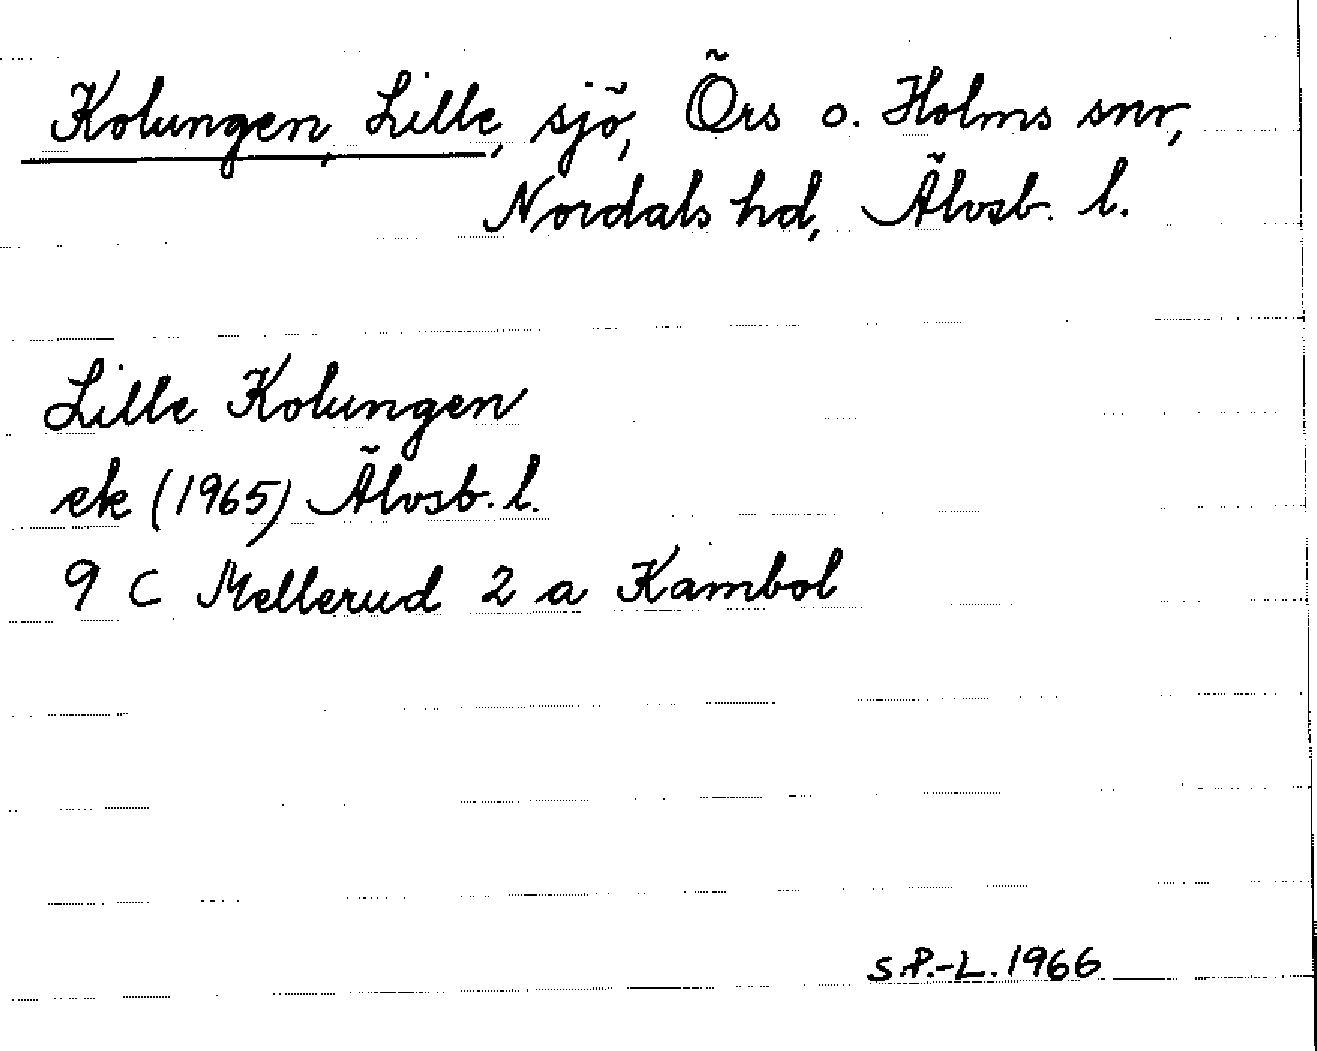 Kolungen, Lille, sjö, Örs o. Holms snr,
Nordals hd, Älvsb. l.
Lille Kolungen
ek (1965) Älvsb. l.
9 C Mellerud 2 a Kambol
S.P.-L. 1966